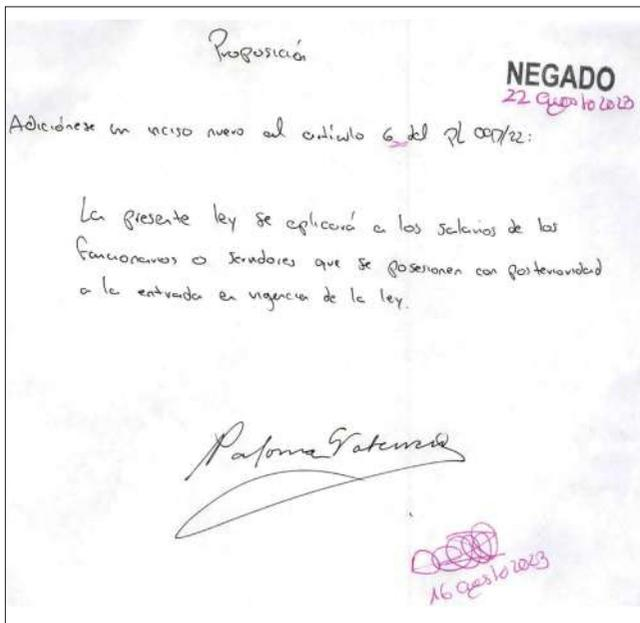 Proposición
NEGADO
22 agosto 2023
Adiciónese un inciso nuevo al artículo 6 del PL 007/22:
La presente ley se aplicará a los salarios de los
funcionarios o servidores que se posesionen con posterioridad
a la entrada en vigencia de la ley.
Paloma Valencia
16 agosto 2023